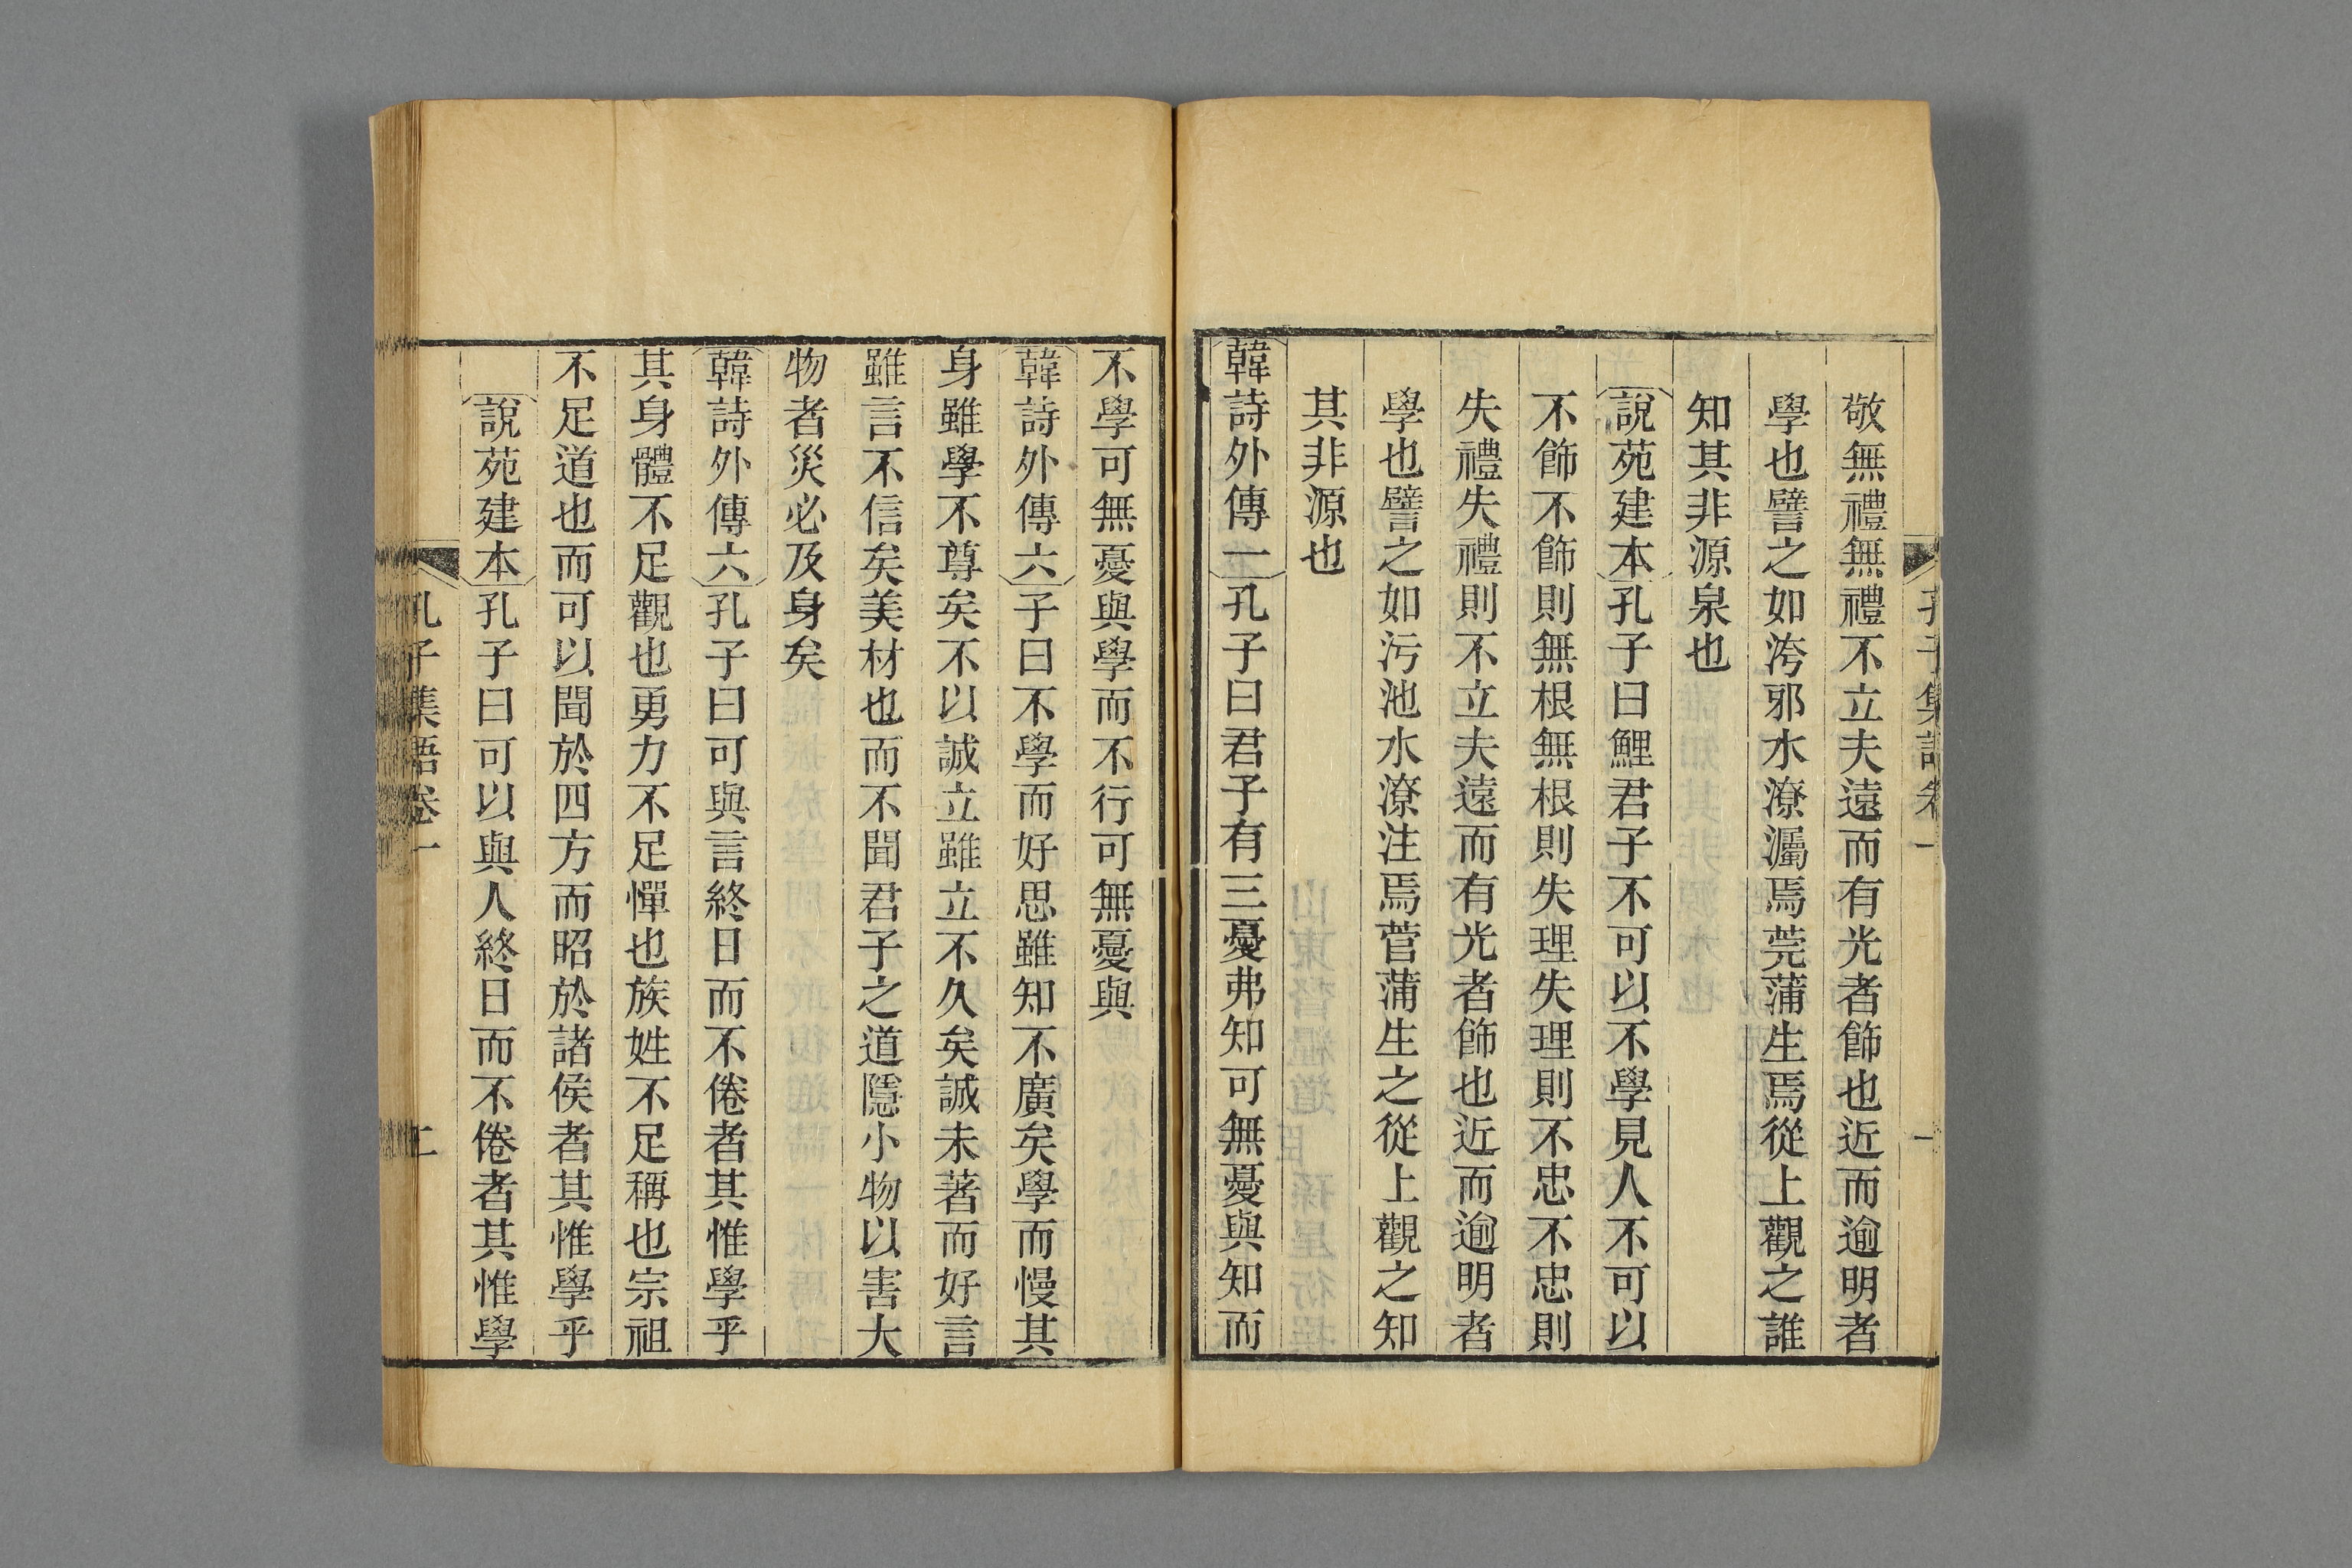 孔子集語卷一 一
敬無禮無禮不立夫遠而有光者飾也近而逾明者
學也譬之如洿邪水潦灟焉莞蒲生焉從上觀之誰
知其非源泉也
說苑建本孔子曰鯉君子不可以不學見人不可以
不飾不飾則無根無根則失理失理則不忠不忠則
失禮失禮則不立夫遠而有光者飾也近而逾明者
學也譬之如污池水潦注焉菅蒲生之從上觀之知
其非源也
韓詩外傳一孔子曰君子有三憂弗知可無憂與知而
不學可無憂與學而不行可無憂與
韓詩外傳六子曰不學而好思雖知不廣矣學而慢其
身雖學不尊矣不以誠立雖立不久矣誠未著而好言
雖言不信矣美材也而不聞君子之道隱小物以害大
物者災必及身矣
韓詩外傳六孔子曰可與言終日而不倦者其惟學乎
其身體不足觀也勇力不足憚也族姓不足稱也宗祖
不足道也而可以聞於四方而昭於諸侯者其惟學乎
說苑建本孔子曰可以與人終日而不倦者其惟學
孔子集語卷一 二